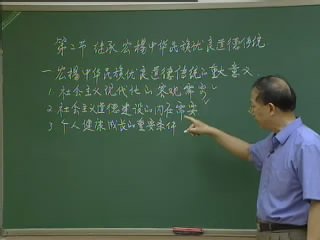 第二节 继承宏扬中华民族优良道德传统
一.宏扬中华民族优良道德传统的重大意义
1.社会主义现代化的客观需要
2.社会主义道德建设的内在需要
3.个人健康成长的重要条件